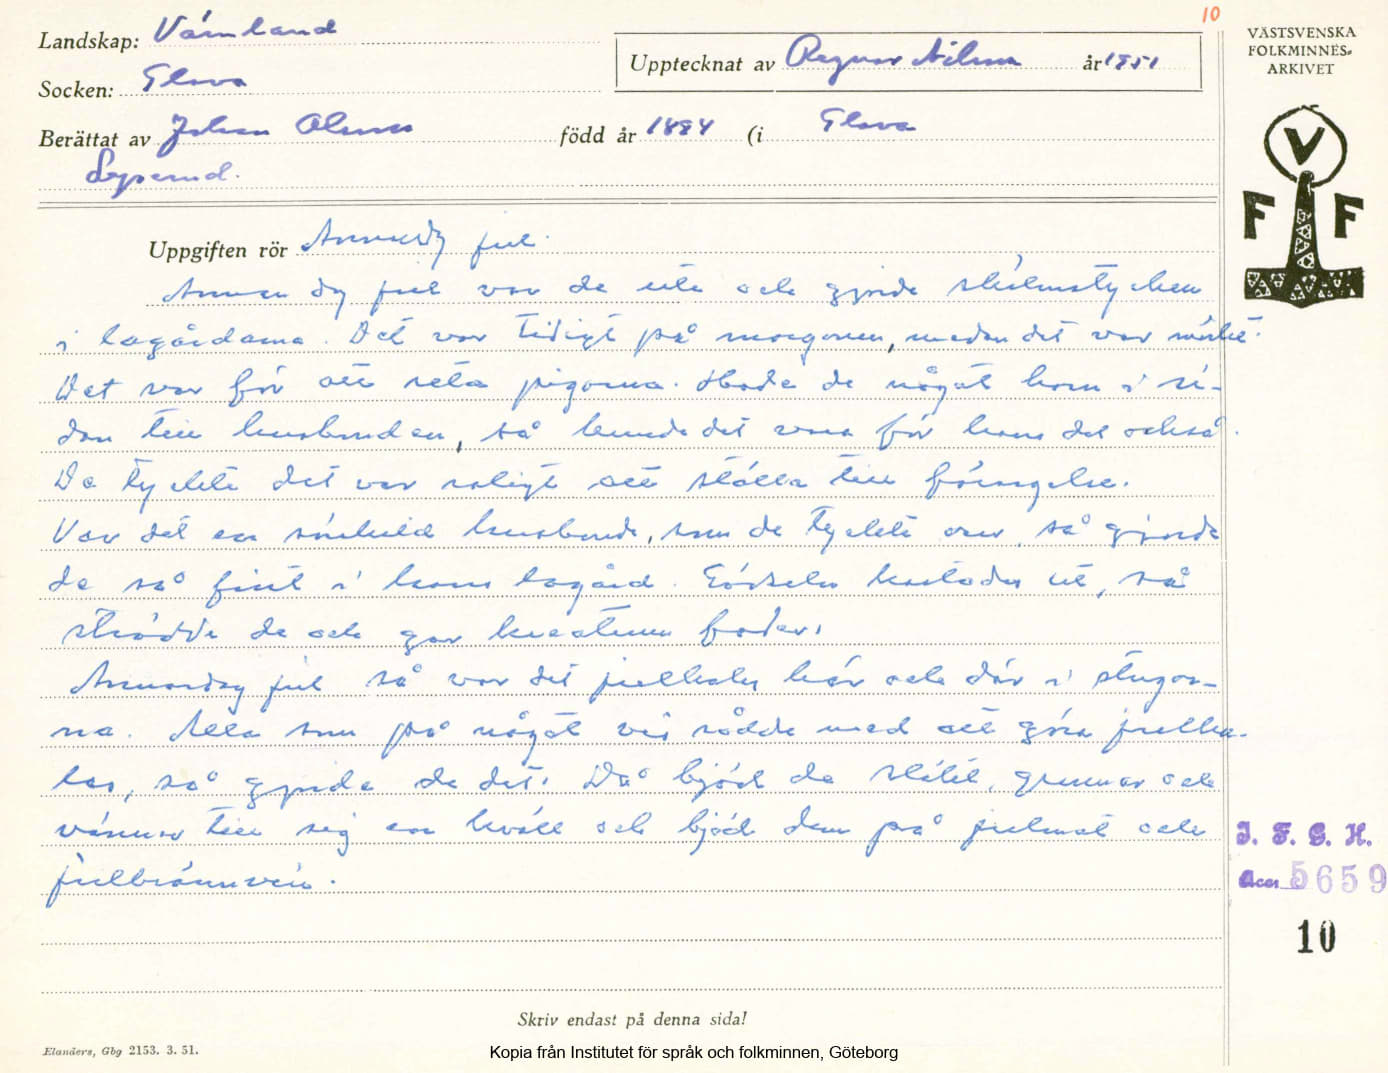 10
Landskap: Värmland
Upptecknat av Ragnar Nilsson år 1951
Socken: Glava
Berättat av Johan Olsson född år 1884 (i Glava
VÄSTSVENSKA
FOLKMINNES-
ARKIVET
V
F F
Uppgiften rör Annandag jul.
Annandag jul var de ute och gjorde skälmstycken
i lagårdarna. Det var tidigt på morgonen, medan det var mörkt.
Det var för att reta pigorna. Hade de något horn i si-
dan till husbonden, så kunde det vara för hans del också.
De tyckte det var roligt att ställa till förargelse.
Var det en särskild husbonde, som de tyckte om, så gjorde
de så fint i hans lagård. Gödseln kastades ut, så
strödde de och gav kreaturen foder.
Annandag jul så var det julkalas här och där i stugor-
na. Alla som på något vis rådde med att göra julka-
las, så gjorde de det. Då bjöd de släkt, grannar och
vänner till sig en kväll och bjöd dem på julmat och
julbrännvin.
I. F. G. H.
Acc. 5659
10
Skriv endast på denna sida!
Elanders, Gbg 2153. 3. 51.
Kopia från Institutet för språk och folkminnen, Göteborg